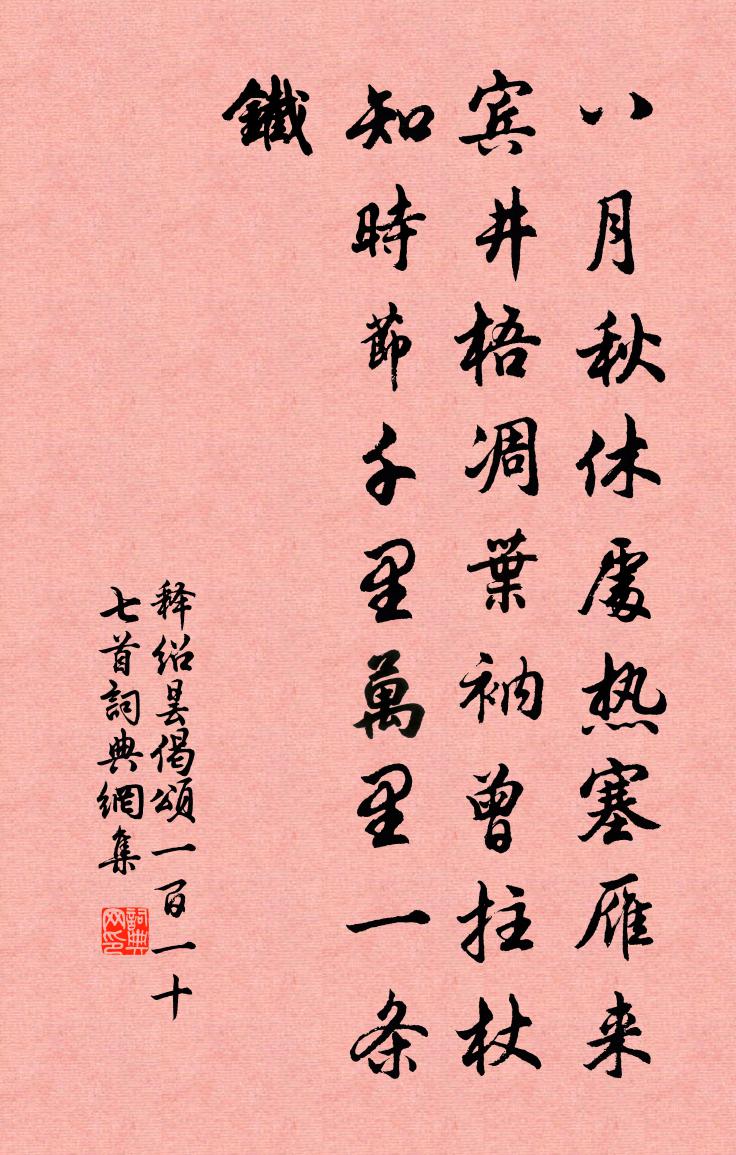 八月秋休處热塞雁来
宾井梧凋葉衲曾拄杖
知時節千里萬里一条
鐵
释绍昙偈頌一百一十
七首詞典網集
詞典网印